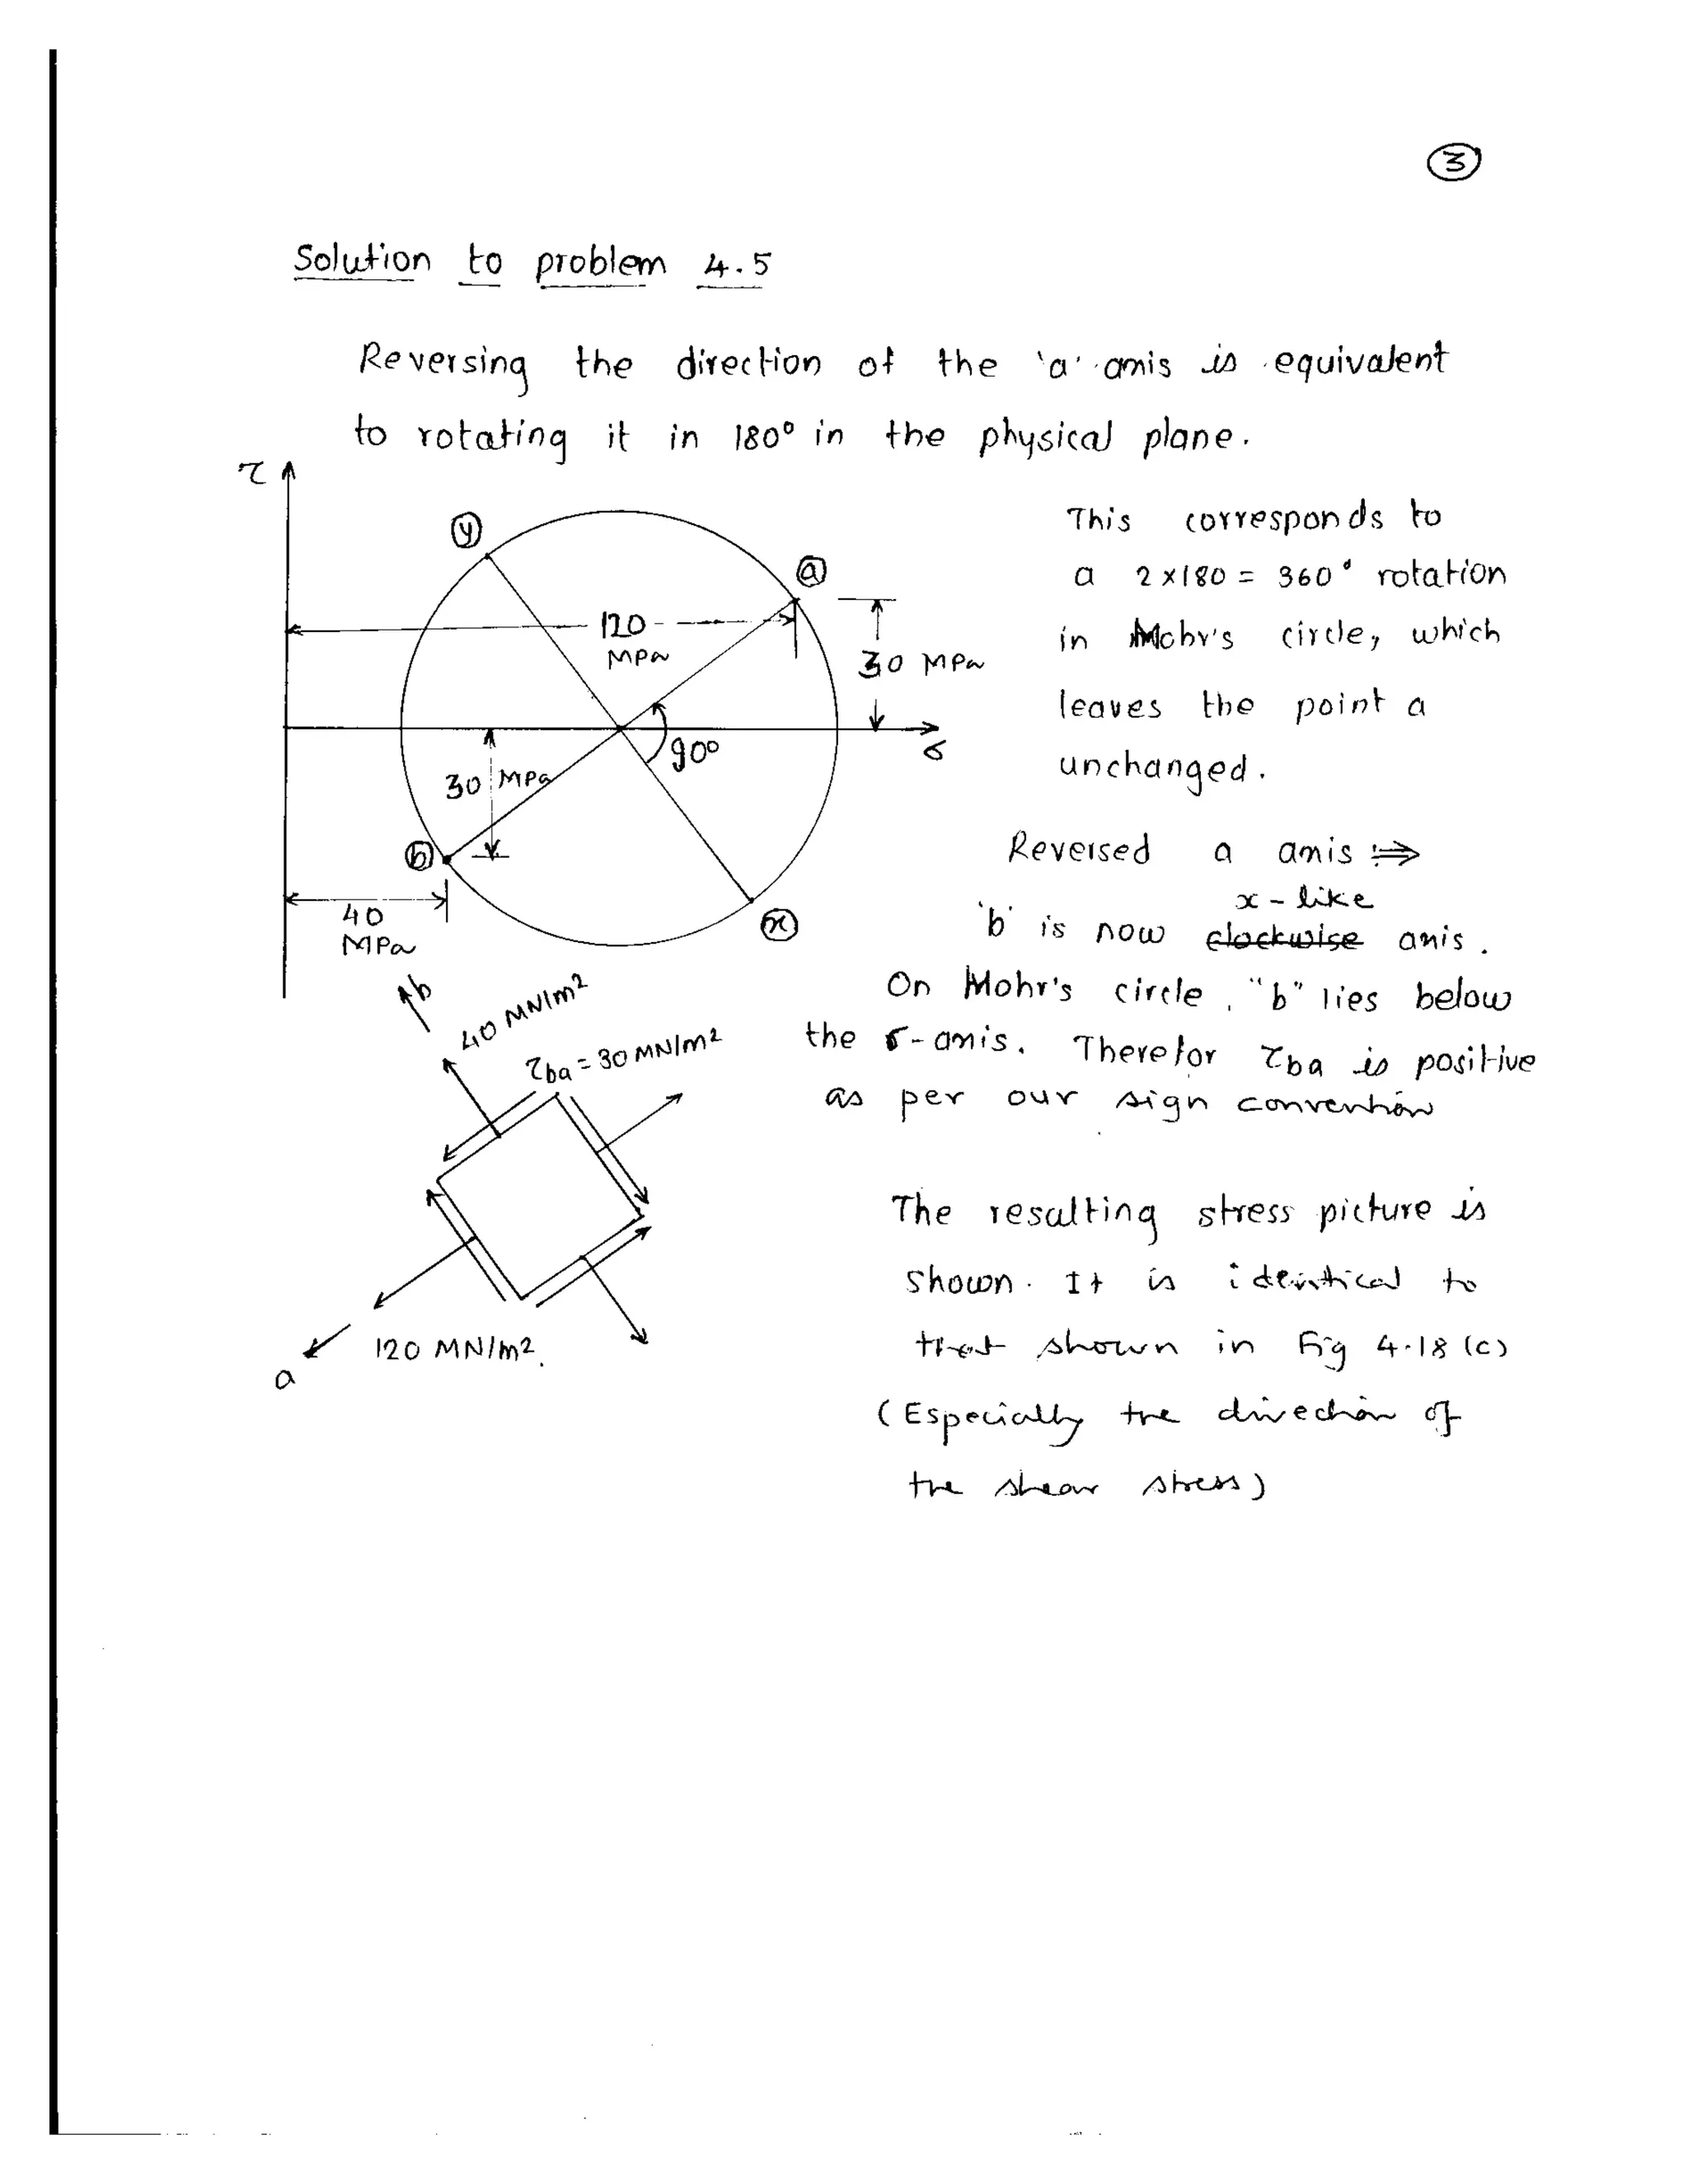 3
Solution to problem 4.5
Reversing the direction of the 'a' axis is equivalent
to rotating it in 180° in the physical plane.
τ
y
a
This corresponds to
a 2×180 = 360° rotation
120
MPa
30 MPa
in Mohr's circle, which
leaves the point a
σ
90°
30 MPa
unchanged.
b
Reversed a axis ⇒
x-like
40
MPa
x
'b' is now clockwise axis.
b
40 MN/m²
On Mohr's circle, "b" lies below
τba = 30 MN/m²
the σ-axis. Therefor τba is positive
as per our sign convention
The resulting stress picture is
shown. It is identical to
120 MN/m².
that shown in Fig 4.18 (c)
a
(Especially the direction of
the shear stress)